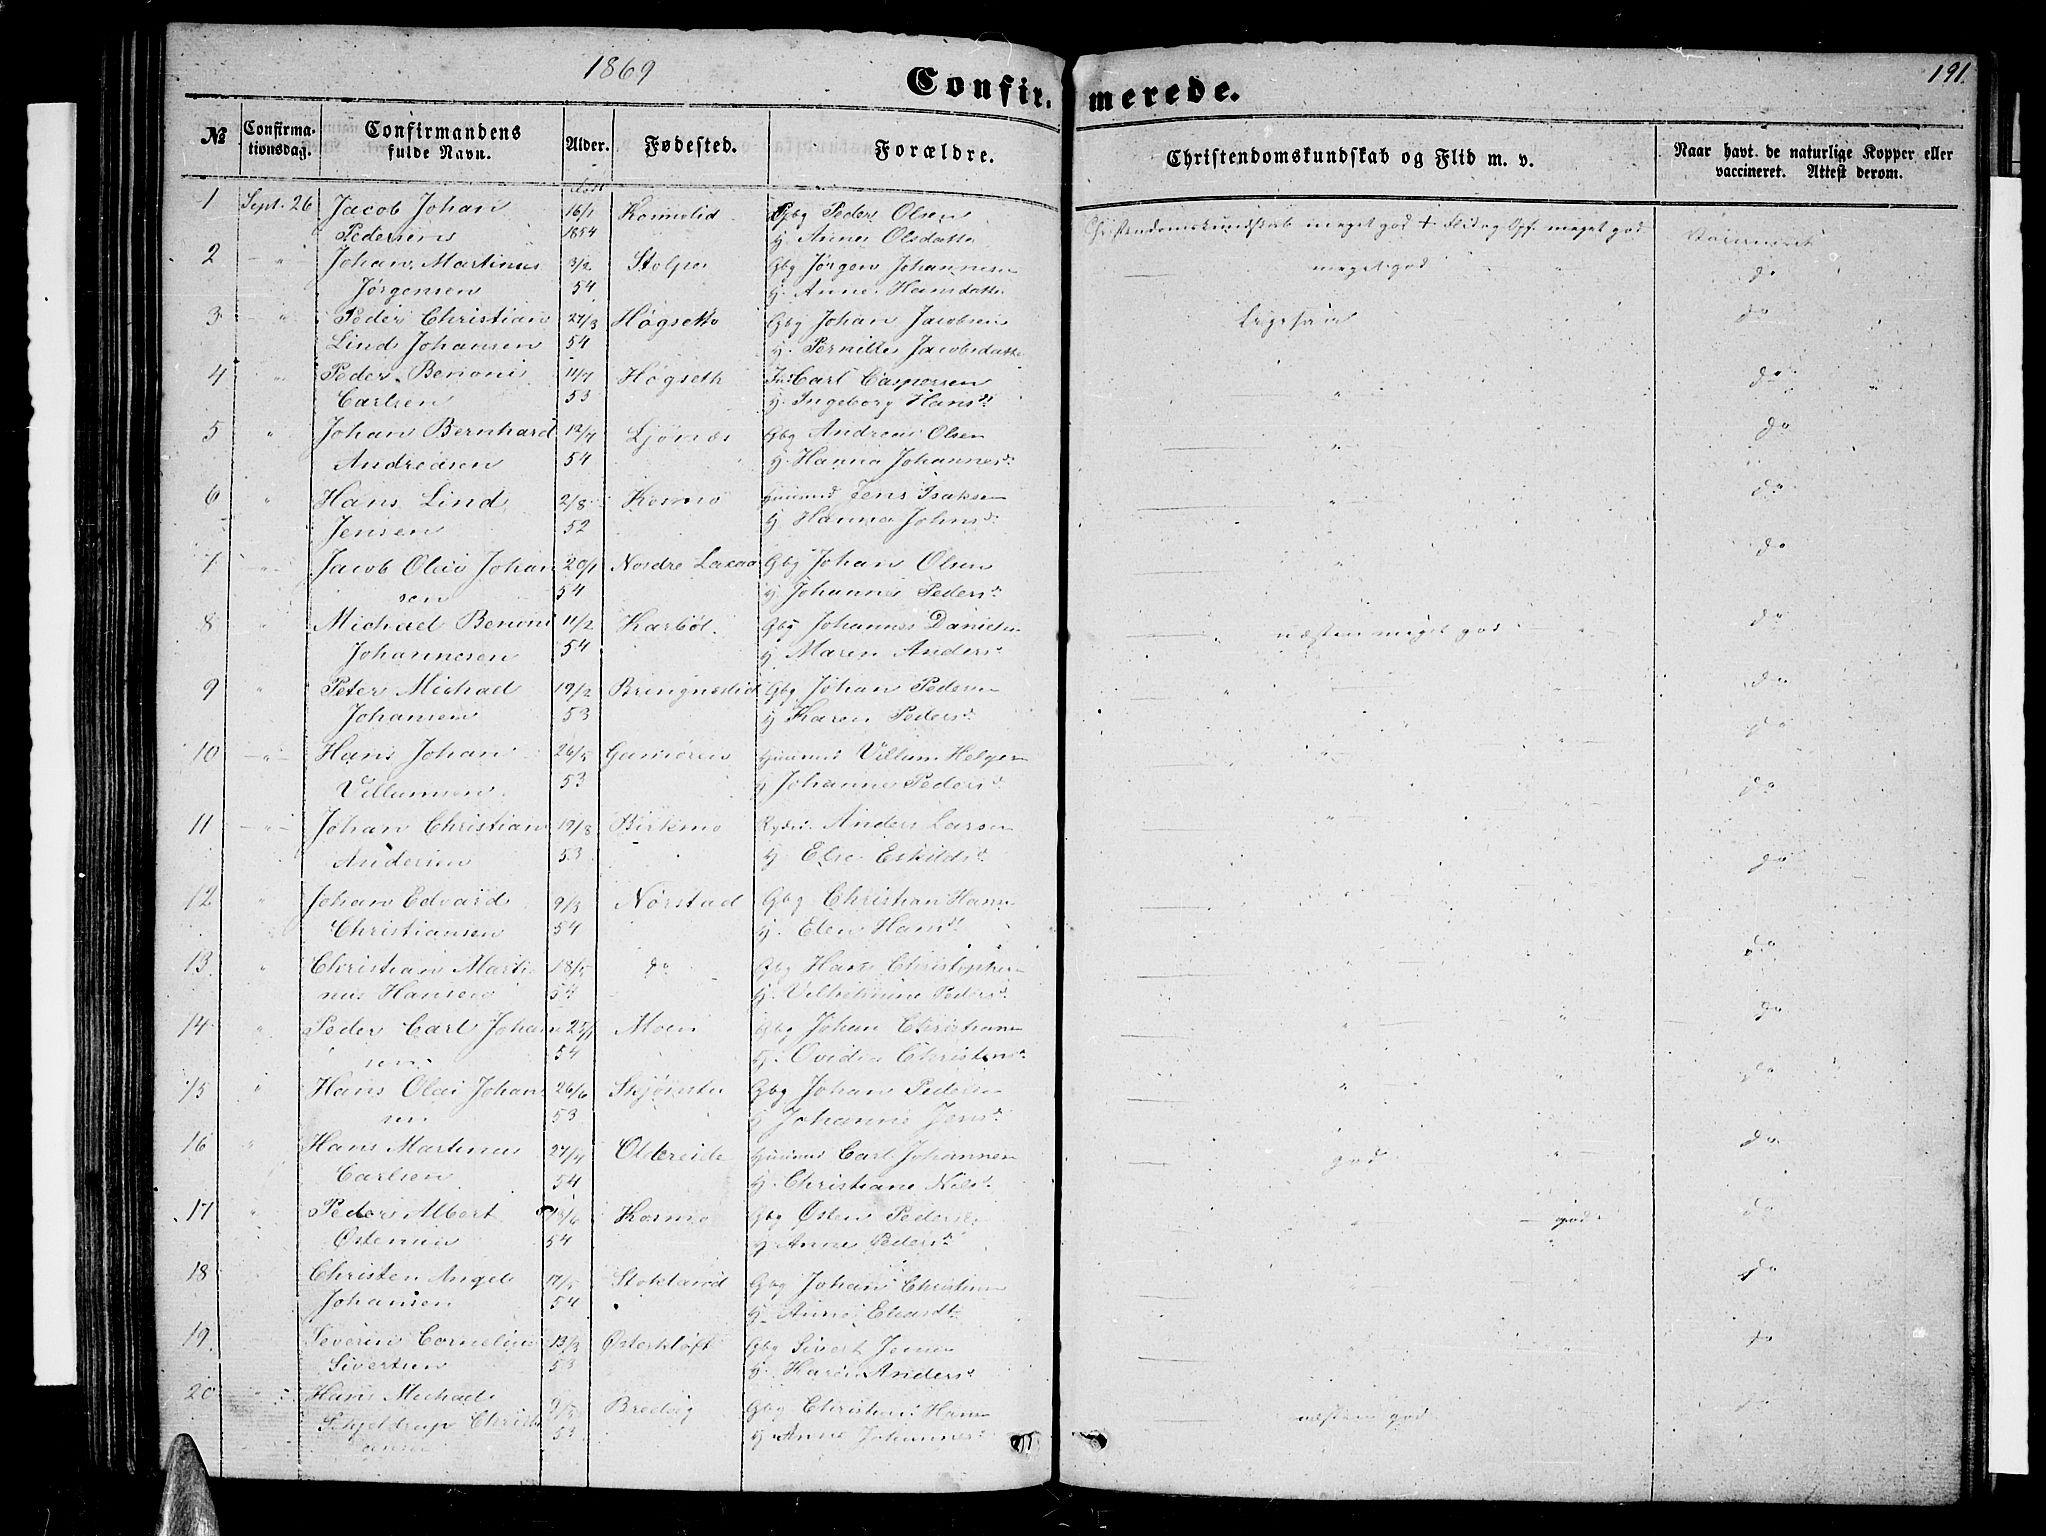 1869
Confir- merede.
191.
№
Confirma-
tionsdag.
Confirmandens
fulde Navn.
Alder.
Fødested.
Forældre.
Christendomskundskab og Flid m. v.
Naar havt de naturlige Kopper eller
vaccineret. Attest derom.
1 Sept. 26 Jacob Johan 16/1 Gbg Peder Olsen Christendomskundskab meget god + Flid og Opf. meget god Vaccineret
Pedersen 1854 H. Anne Olsdatter
2 — " — Johan Martinus 3/2 Stolpe Gbg Jørgen Johannesen meget god do
Jørgensen 54 H. Anne Hansdatter
3 — " Peder Christian 27/3 Høgseth Gbg Johan Jacobsen ligesaa do
Lind Johansen 54 H. Pernille Jacobsdatter
4 " Peder Benoni 11/7 Høgseth Carl Caspersen " do
Carlsen 53 H. Ingeborg Hansd.
5 " Johan Bernhard 12/4 Ljønæs Gbg Andreas Olsen " do
Andreasen 54 H. Hanna Johannesd.
6 " Hans Lind 2/8 Kosmo Huusmd Jens Isaksen " do
Jensen 52 H Hanna Johnsd.
7 — " — Jacob Olai Johan 20/1 Nordre Gbg Johan Olsen " do
sen 54 H Johanne Pedersd.
8 " Michael Benoni 11/2 Karbøl Gbg Johannes Danielsen " næsten meget god " do
Johannesen 54 H. Maren Andersd.
9 " Peter Michael 19/2 Bringneslid Gbg Johan Pedersen " do
Johansen 53 H Karen Pedersd.
10 — " — Hans Johan 26/5 Huusmd Villum Helgesen " do
Villumsen 53 H Johanna Pedersd.
11 — " — Johan Christian 19/8 Birkmo Anders Larsen do
Andersen 53 H Else Eskildsd.
12 " Johan Edvard 9/3 Nørstad Gbg Christian Hansen " do
Christiansen 54 H. Elen Hansd.
13 " Christian Marti- 18/5 do Gbg Hans Christophersen do
nus Hansen 54 H. Vilhelmine Pedersd.
14 " Peder Carl Johan 25/1 Moen Gbg Johan Christiansen " do
sen 54 H. Ovidia Christensd.
15 " Hans Olai Johan 26/6 Skjønstu Gbg Johan Pedersen " do
sen 53 H Johanne Jensd.
16 " Hans Martinus 27/4 Oldereide Huusmd Carl Johannesen god " do
Carlsen 54 H. Christiane Nilsd.
17 " Peder Albert 13/6 Kosmo Gbg Østen Pedersen — god do
Østensen 54 H Anne Pedersd.
18 Christen Angel 17/5 Stokland Gbg Johan Christensen " do
Johansen 54 H. Anne
19 Severin Cornelius 13/3 Østerkløft Gbg Sivert Jensen do
Sivertsen 53 H. Karen Andersd.
20 " Hans Michael 9/5 Bredvig Gbg Christian Hansen næsten god do
Skjeldrup Christi 53 H. Anne Johannesd.
ansen